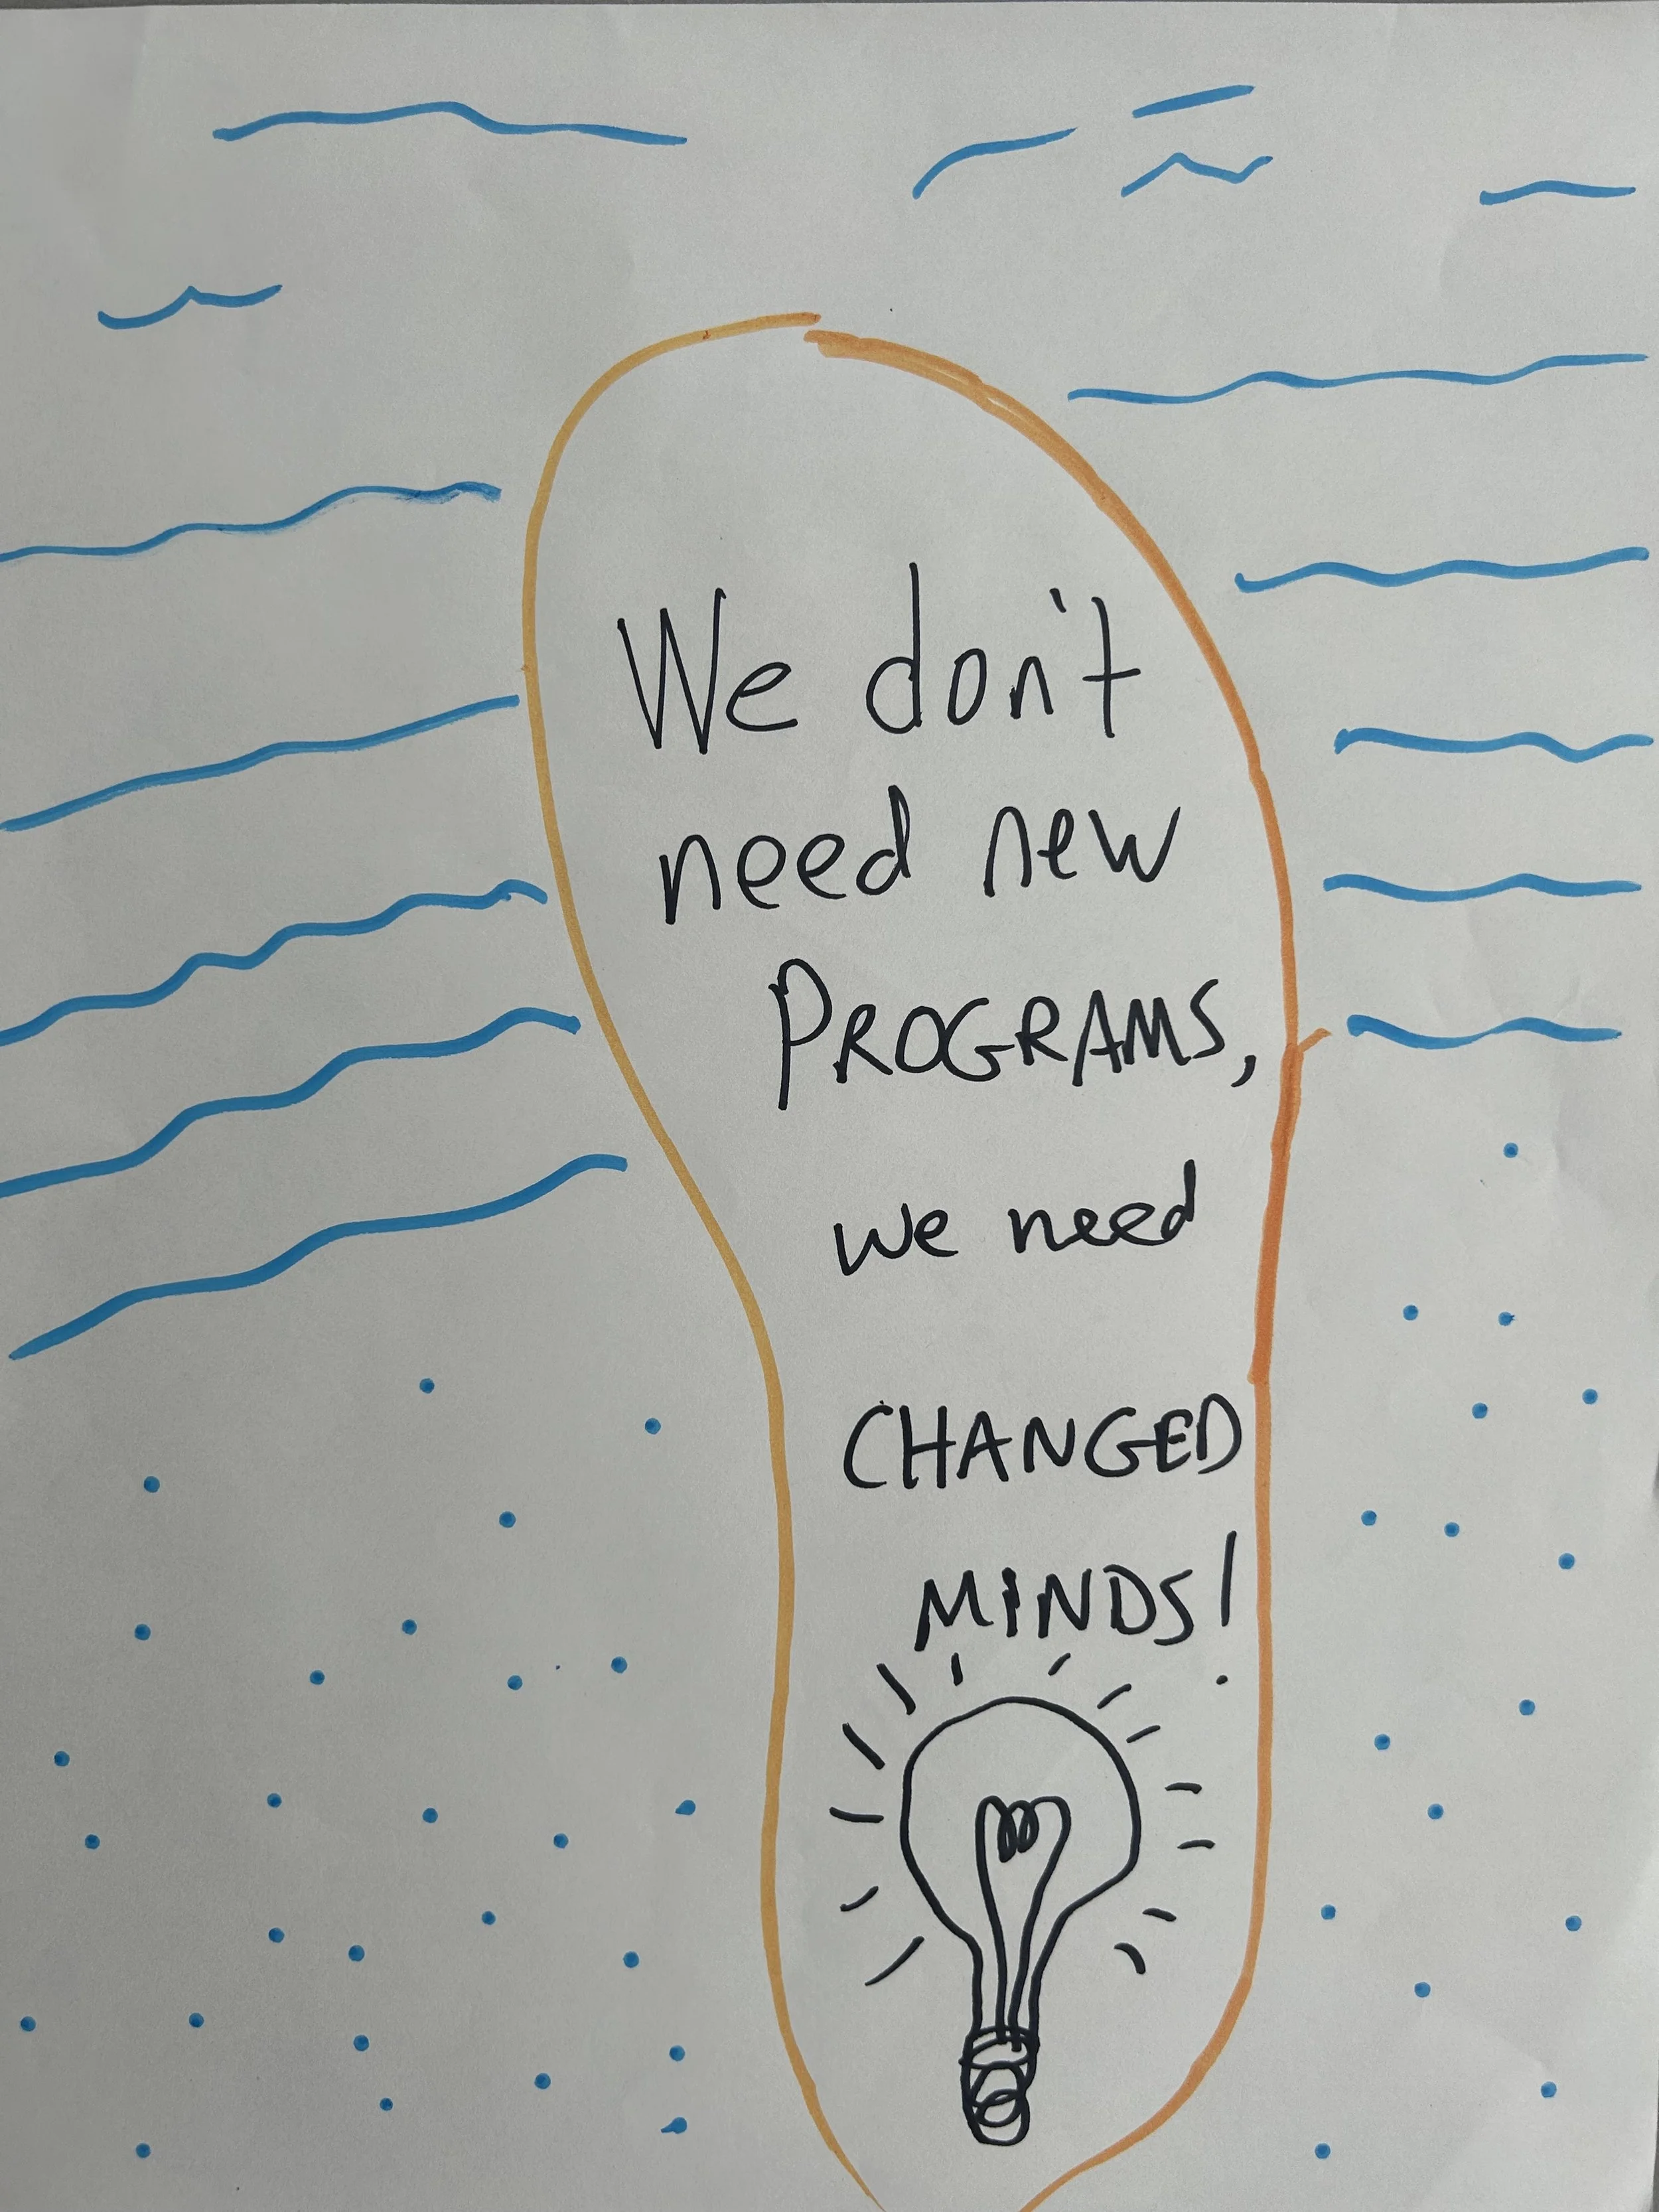 We don't
need new
PROGRAMS,
we need
CHANGED
MINDS!